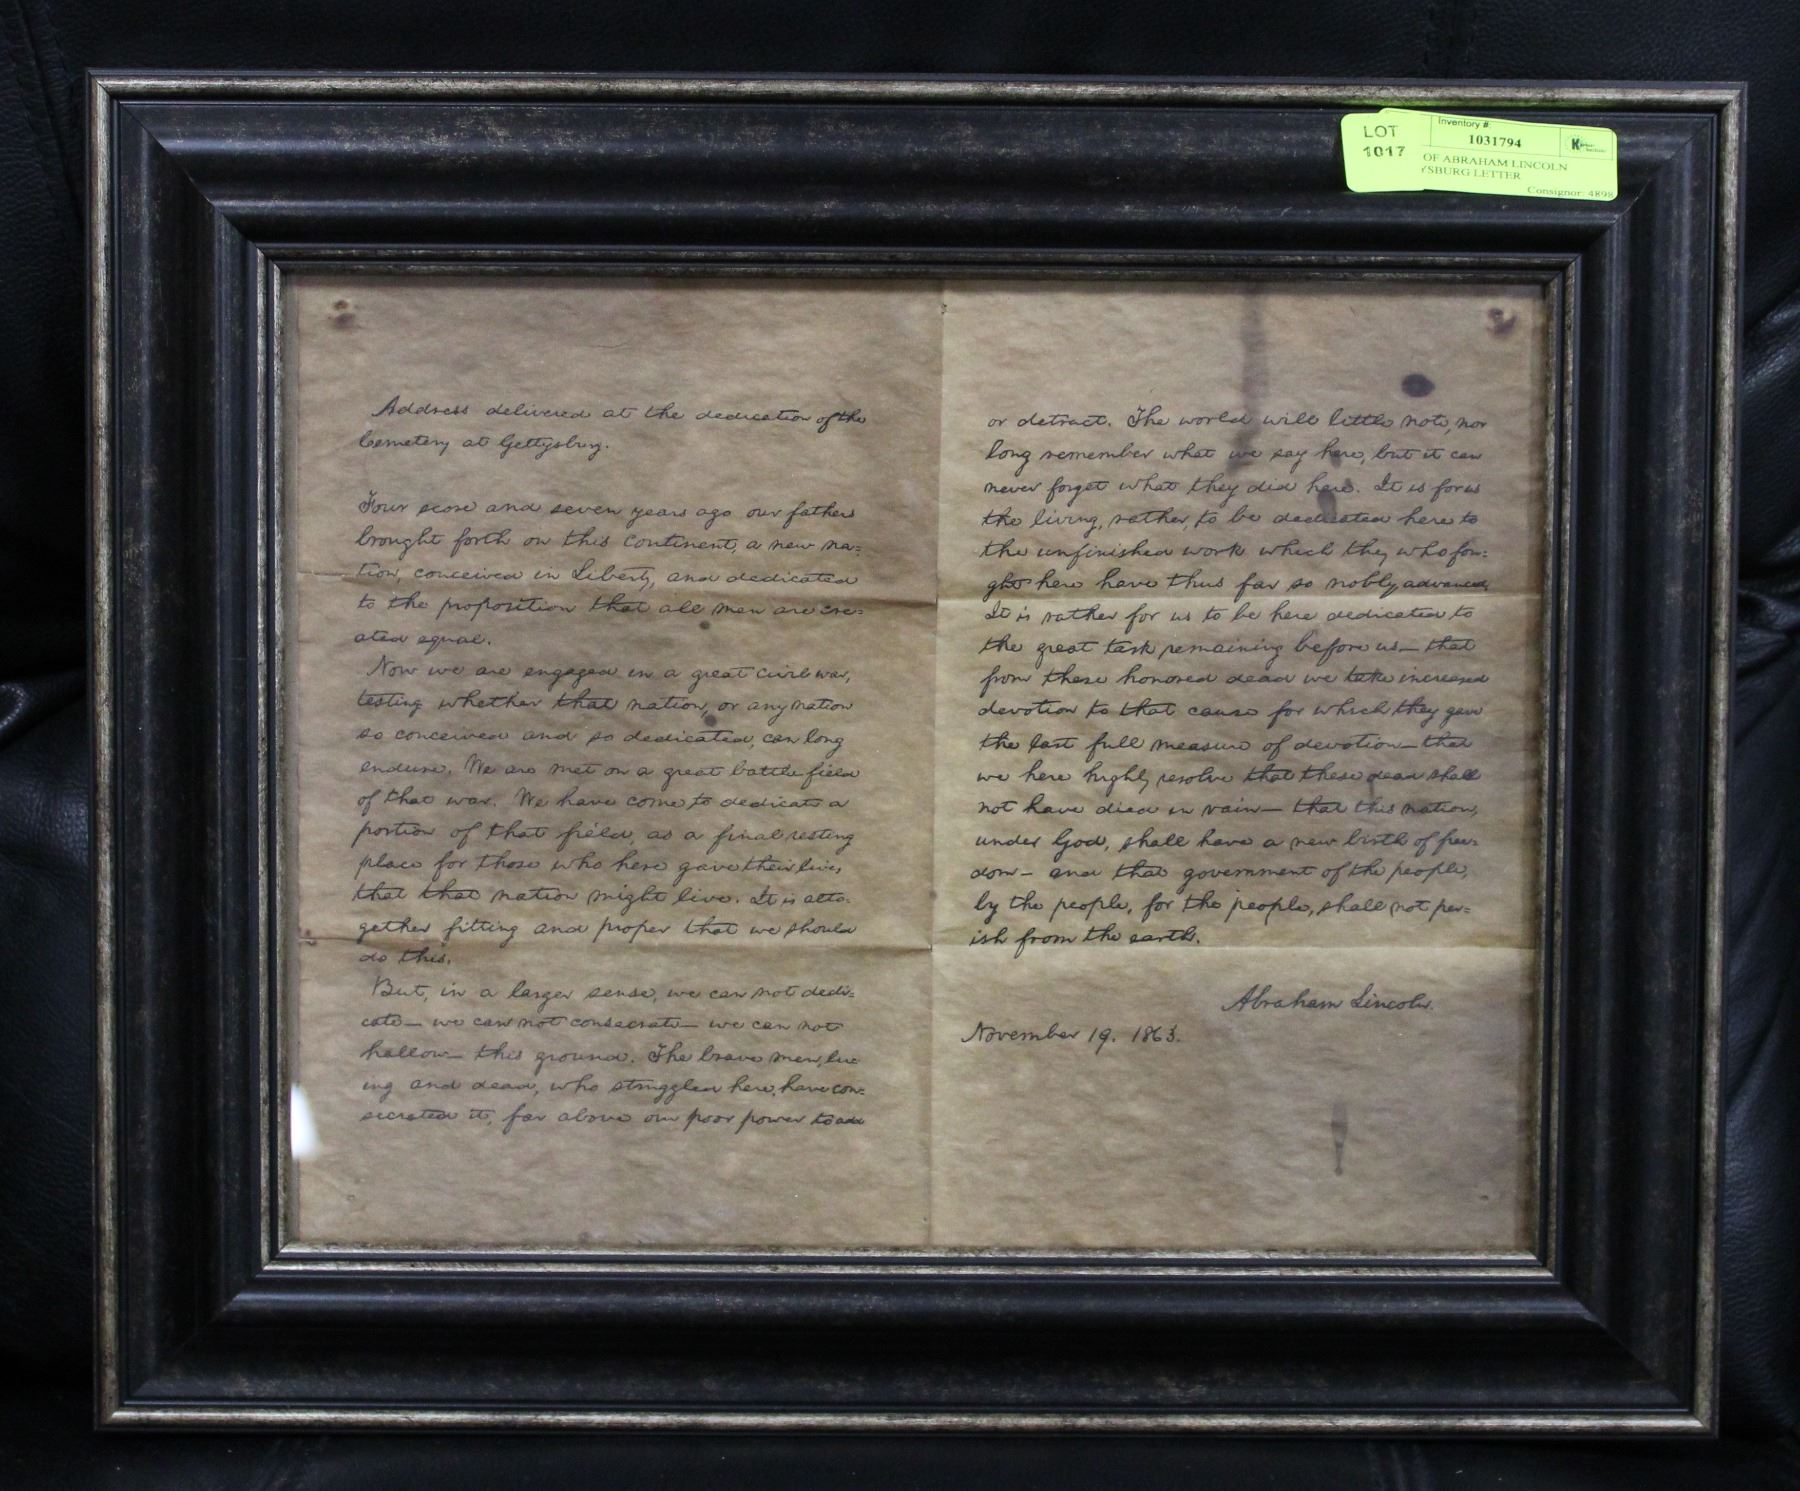 LOT
1017
Inventory #:
1031794
OF ABRAHAM LINCOLN
YSBURG LETTER
Consignor: 4898
Address delivered at the dedication of the
Cemetery at Gettysburg.
Four score and seven years ago our fathers
brought forth on this continent, a new na=
tion, conceived in Liberty, and dedicated
to the proposition that all men are cre=
ated equal.
Now we are engaged in a great civil war,
testing whether that nation, or any nation
so conceived and so dedicated, can long
endure. We are met on a great battle field
of that war. We have come to dedicate a
portion of that field, as a final resting
place for those who here gave their lives
that that nation might live. It is alto-
gether fitting and proper that we should
do this.
But, in a larger sense, we can not dedi=
cate— we can not consecrate— we can not
hallow— this ground. The brave men, liv-
ing and dead, who struggled here, have con=
secrated it, far above our poor power to add
or detract. The world will little note, nor
long remember what we say here, but it can
never forget what they did here. It is for us
the living, rather, to be dedicated here to
the unfinished work which they who fou=
ght here have thus far so nobly advanced.
It is rather for us to be here dedicated to
the great task remaining before us— that
from these honored dead we take increased
devotion to that cause for which they gave
the last full measure of devotion— that
we here highly resolve that these dead shall
not have died in vain— that this nation,
under God, shall have a new birth of free=
dom— and that government of the people,
by the people, for the people, shall not per=
ish from the earth.
Abraham Lincoln.
November 19. 1863.